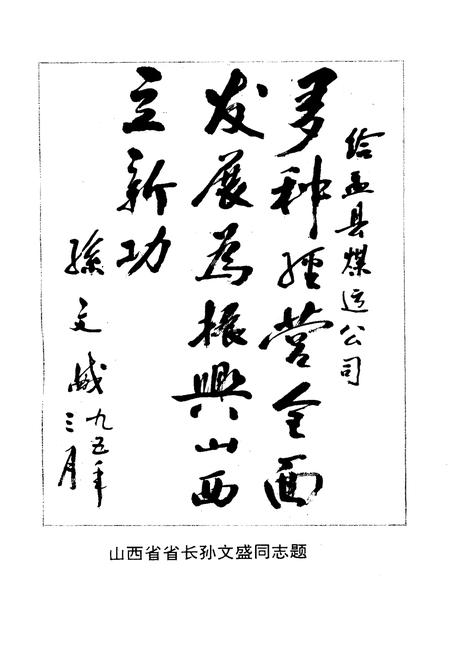 给盂县煤运公司
多种经营全面
发展为振兴山西
立新功
孙文盛
九五年
三月
山西省省长孙文盛同志题